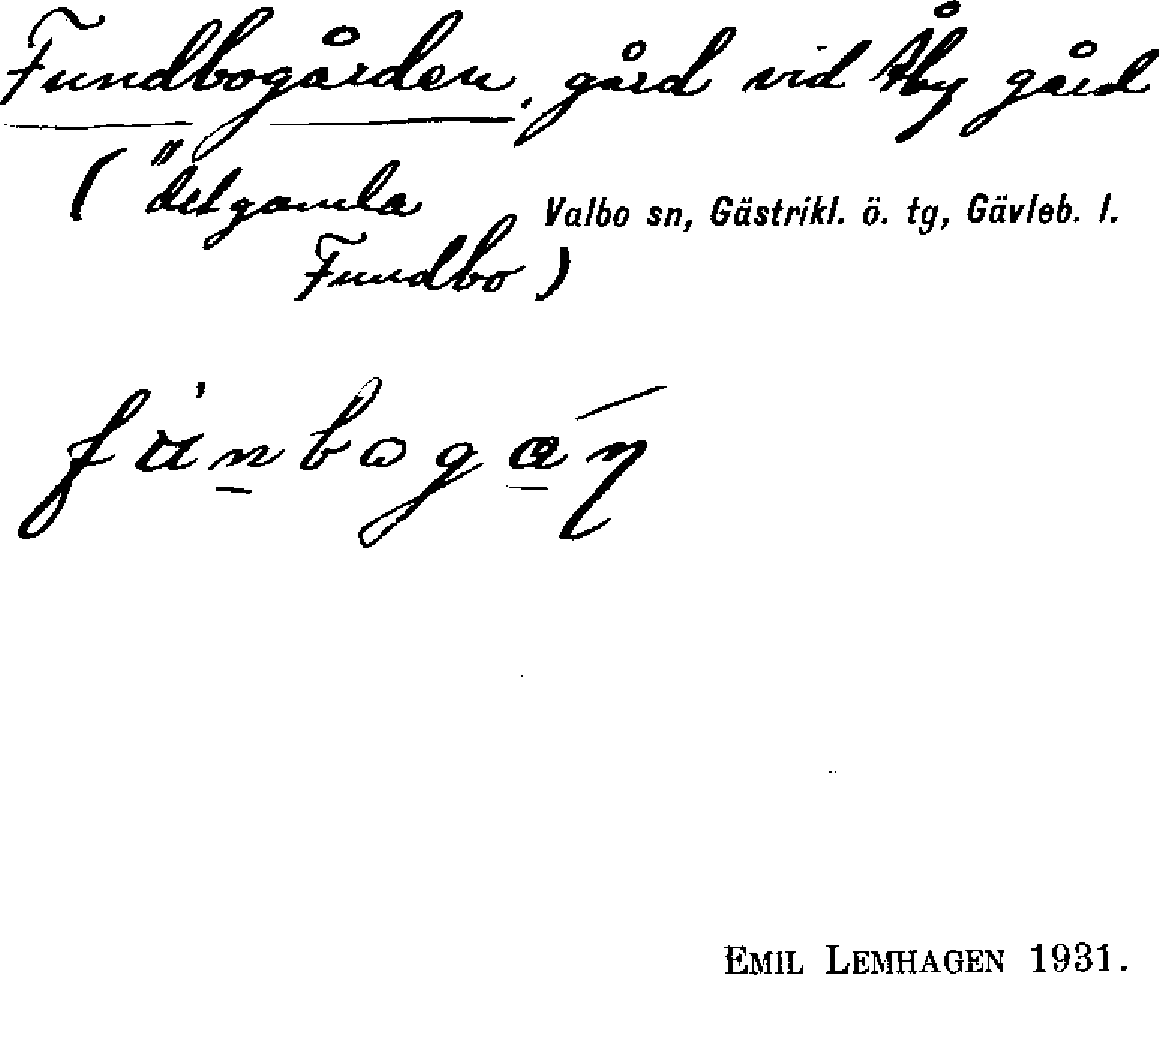 Fundbogården, gård vid Åby gård
("det gamla
Valbo sn, Gästrikl. ö. tg, Gävleb. l.
Fundbo)
Emil Lemhagen 1931.